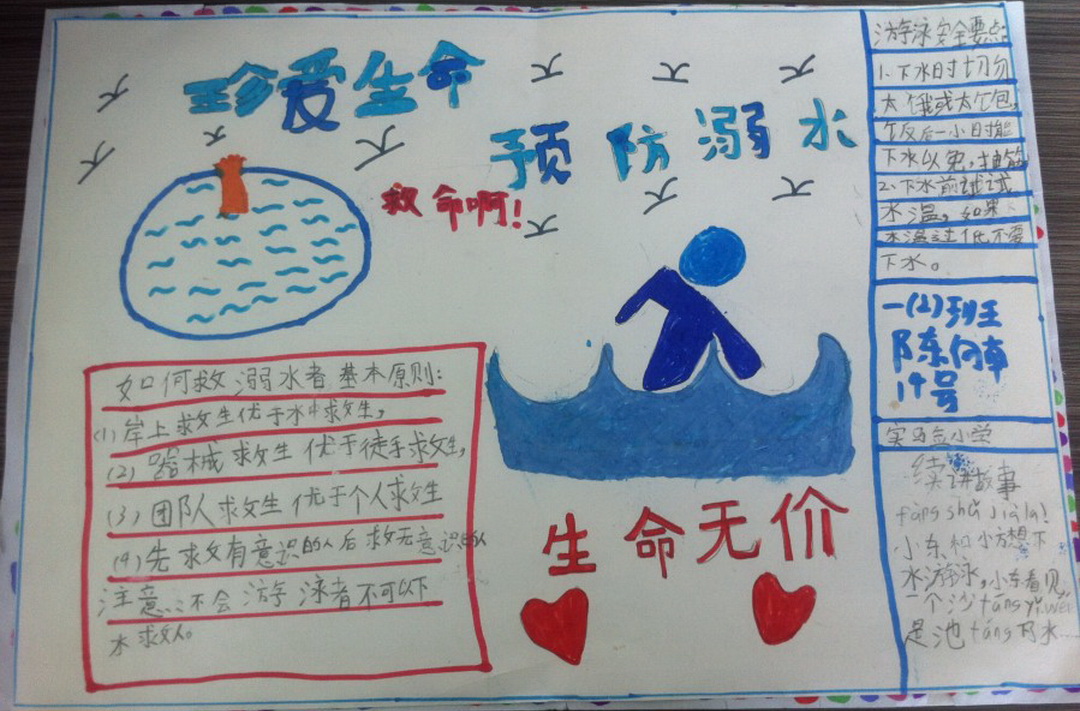 珍爱生命
预防溺水
救命啊！
如何救溺水者基本原则：
(1)岸上救生优于水中救生，
(2)器械救生优于徒手救生，
(3)团队救生优于个人救生
(4)先救有意识的人后救无意识的人
注意：不会游泳者不可以下
水救人。
生命无价
游泳安全要点：
1.下水时切勿
太饿或太饱，
饭后一小时能
下水以免，抽筋
2.下水前试试
水温，如果
水温过低不要
下水。
一(2)班王
陈向南
19号
小学
续讲故事
fàng shǔ jià la!
小东和小方想下
水游泳，小东看见
一个沙 táng yǐ wéi
是池 táng 下水……